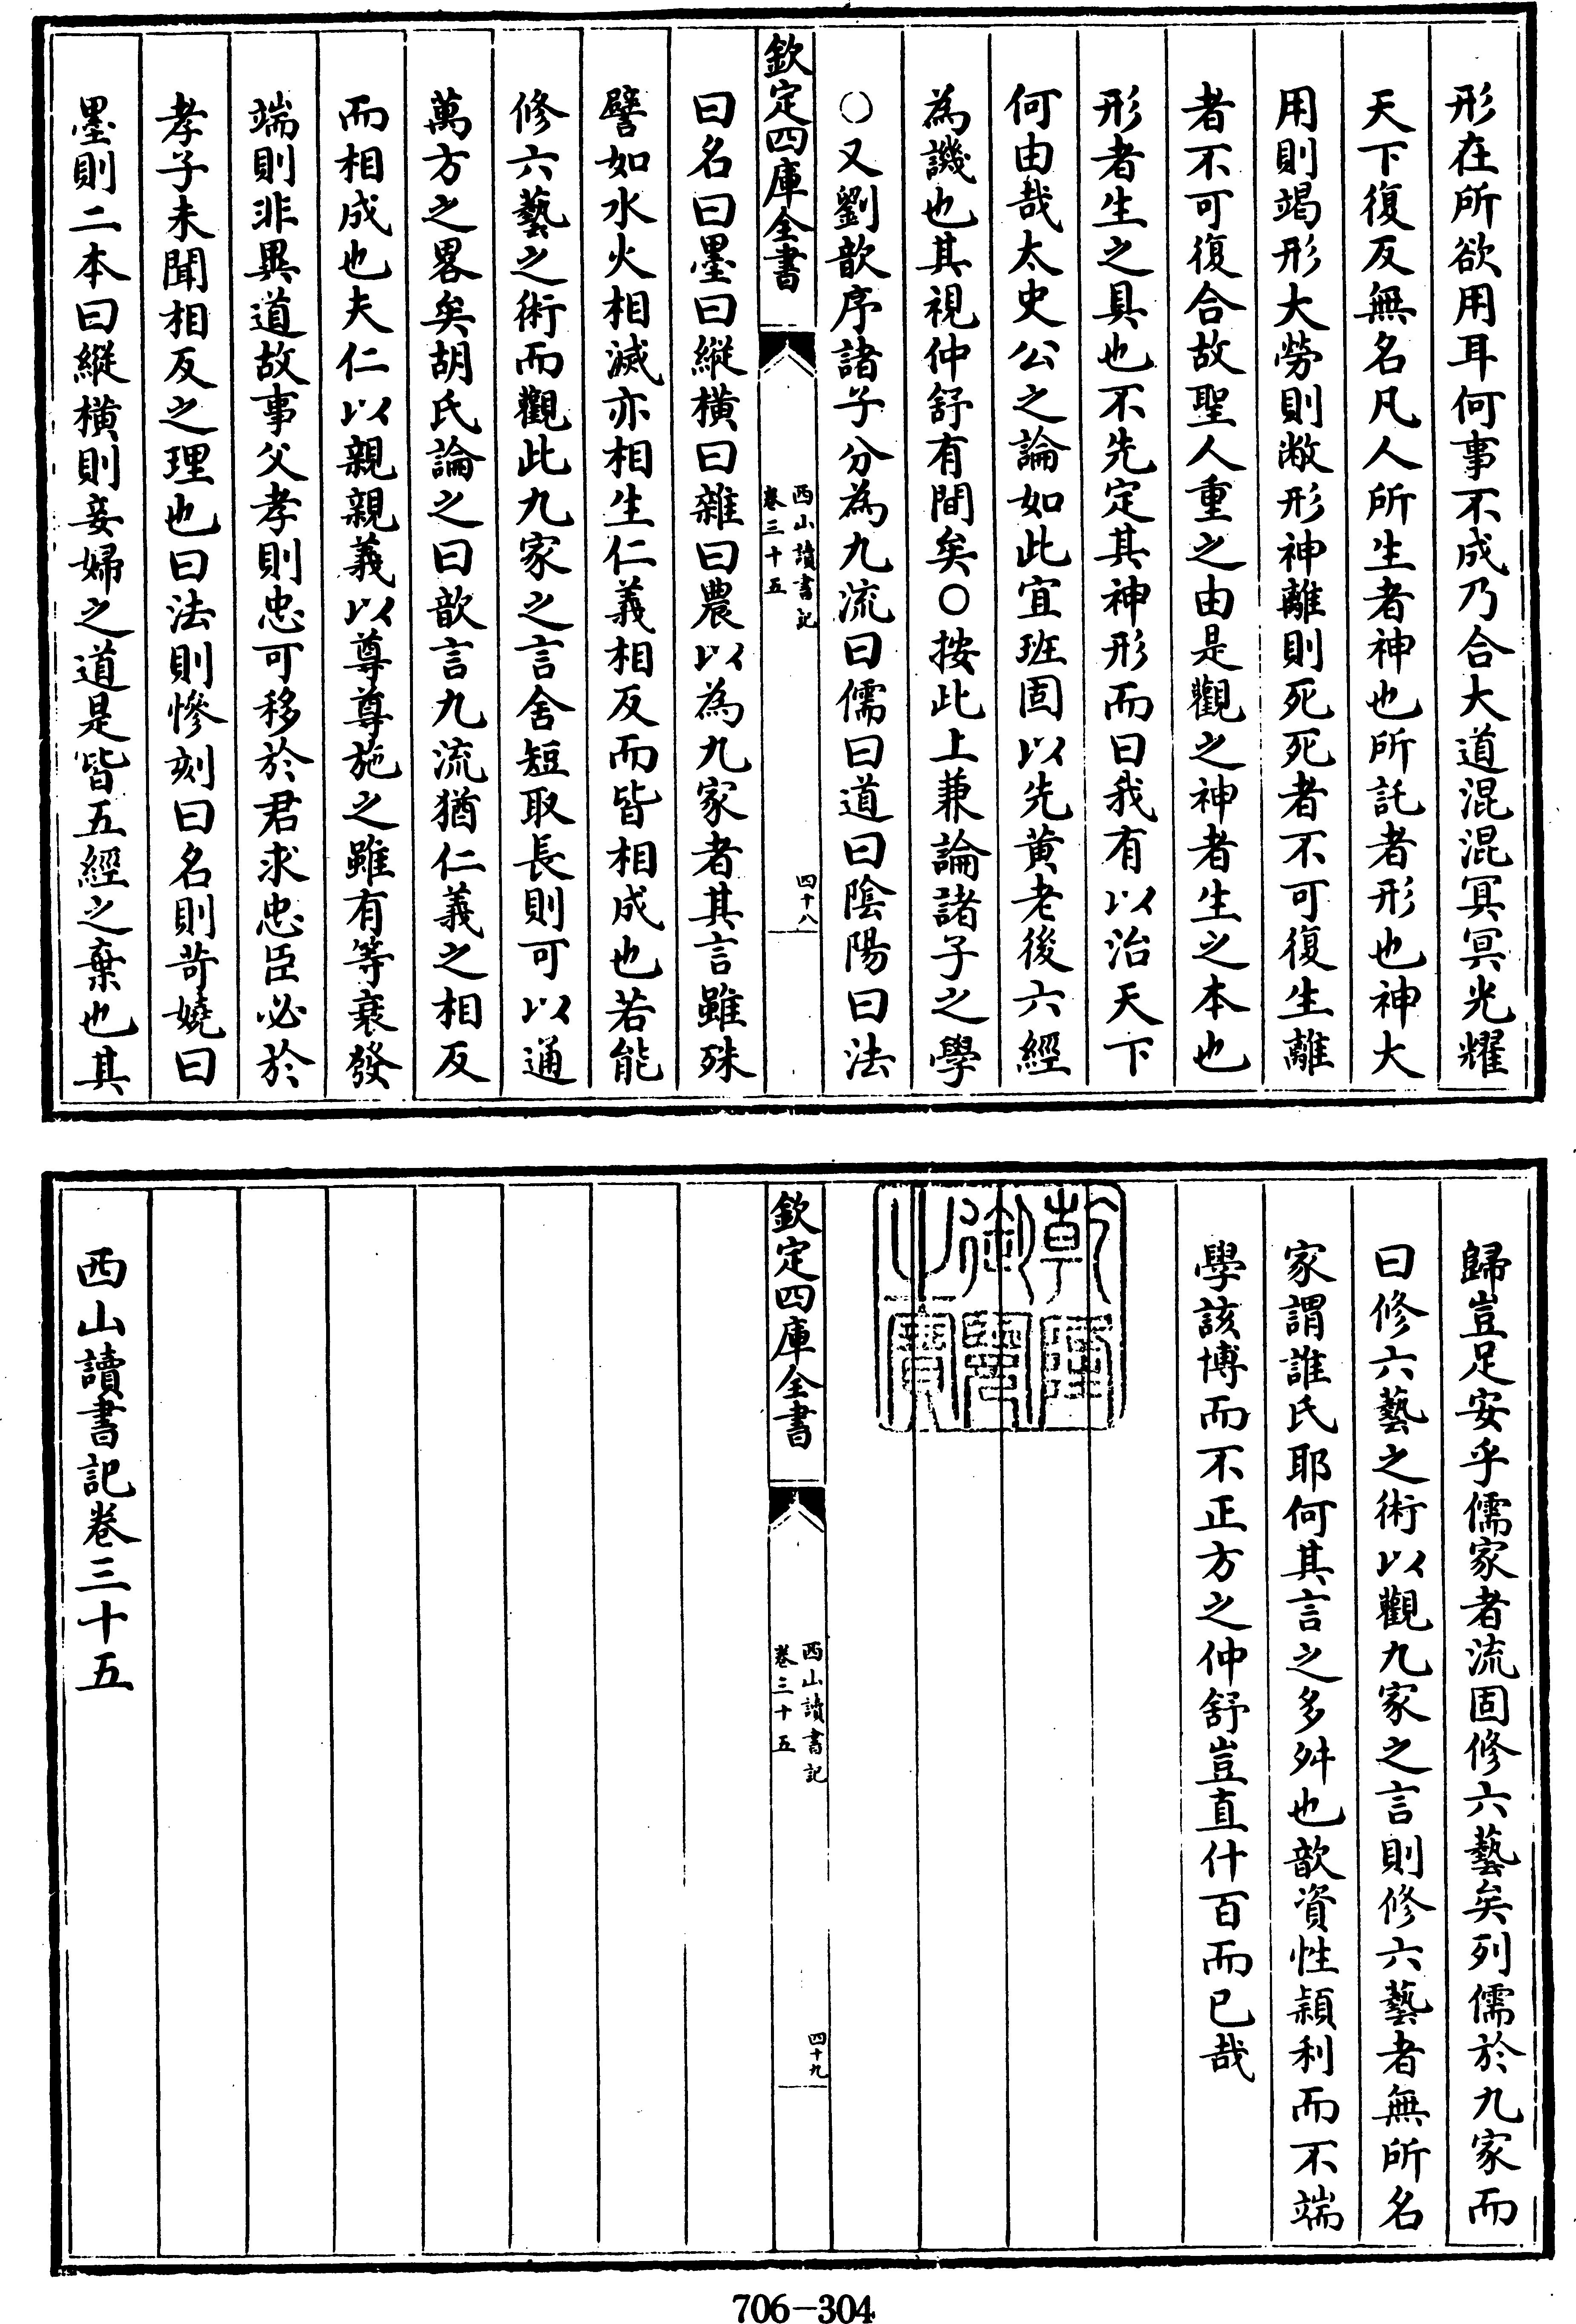 形在所欲用耳何事不成乃合大道混混冥冥光耀
天下復反無名凡人所生者神也所託者形也神大
用則竭形大勞則敝形神離則死死者不可復生離
者不可復合故聖人重之由是觀之神者生之本也
形者生之具也不先定其神形而曰我有以治天下
何由哉太史公之論如此宜班固以先黄老後六經
為譏也其視仲舒有間矣○按此上兼論諸子之學
○又劉歆序諸子分為九流曰儒曰道曰陰陽曰法
欽定四庫全書
西山讀書記
卷三十五
四十八
曰名曰墨曰縱橫曰雜曰農以為九家者其言雖殊
譬如水火相滅亦相生仁義相反而皆相成也若能
修六藝之術而觀此九家之言舍短取長則可以通
萬方之畧矣胡氏論之曰歆言九流猶仁義之相反
而相成也夫仁以親親義以尊尊施之雖有等衰發
端則非異道故事父孝則忠可移於君求忠臣必於
孝子未聞相反之理也曰法則慘刻曰名則苛嬈曰
墨則二本曰縱橫則妾婦之道是皆五經之棄也其
歸豈足安乎儒家者流固修六藝矣列儒於九家而
曰修六藝之術以觀九家之言則修六藝者無所名
家謂誰氏耶何其言之多舛也歆資性穎利而不端
學該博而不正方之仲舒豈直什百而已哉
乾隆御覽之寶
欽定四庫全書
西山讀書記
卷三十五
四十九
西山讀書記卷三十五
706-304